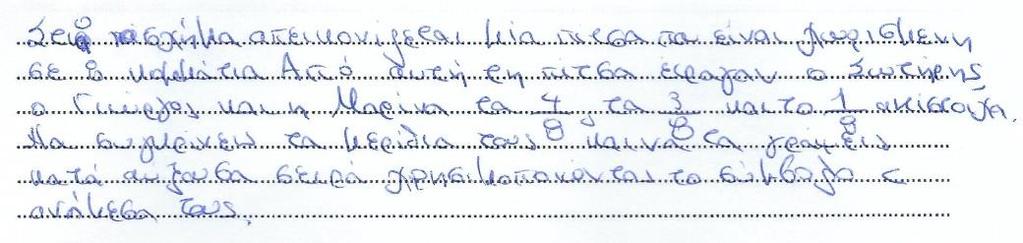 Στο σχήμα απεικονίζεται μία πίτσα πα είναι χωρισμενη
σε 8 κομμάτια Από αυτή τη πίτσα έφαγαν ο Σωτήρης
ο Γιώργος και η Μαρίνα τα 4/8, τα 3/8 και το 1/8 αντίστοιχα.
Να συγκρίνεις τα μερίδια τους και να τα γράψεις
κατά αυξουσα σειρά χρησιμοποιώντας το σύμβολο <
ανάμεσα τους.